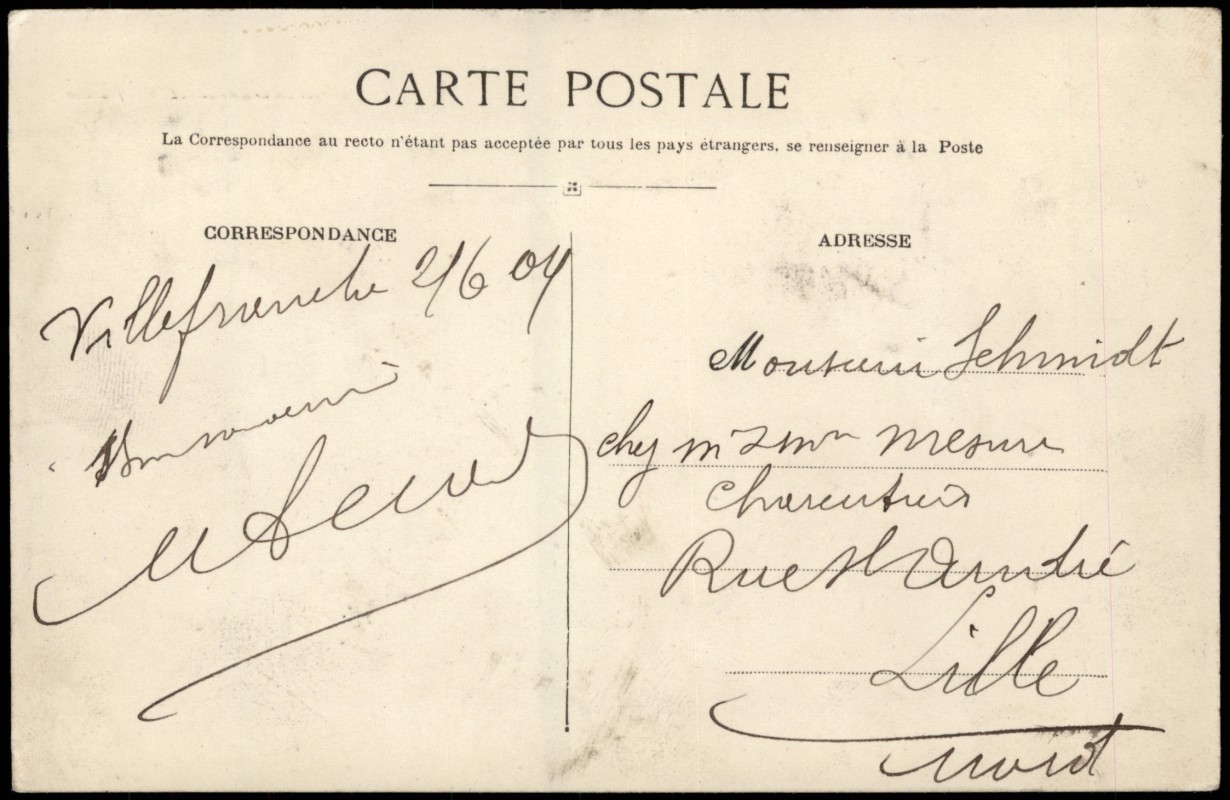 CARTE POSTALE
La Correspondance au recto n'étant pas acceptée par tous les pays étrangers, se renseigner à la Poste
CORRESPONDANCE
Villefranche 2/6 04
Bon souvenir
ADRESSE
Monsieur Schmidt
chez Mesure
Rue St André
Lille
Nord